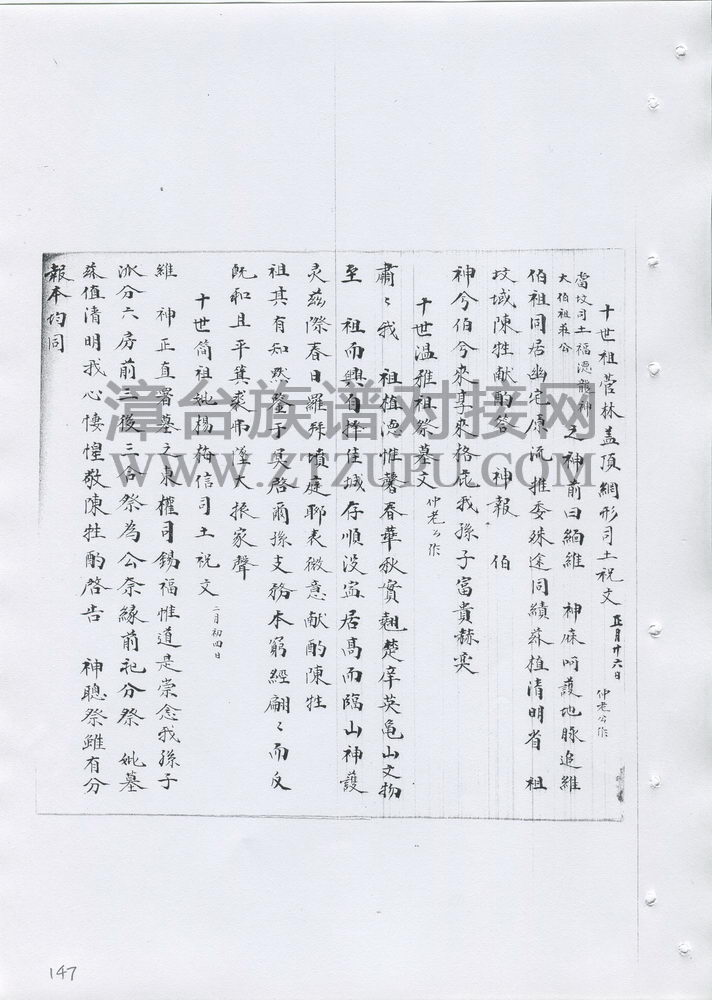 十世祖菅林盖頂網形司土祝文 正月廿六日 仲老公作
當坟司土福德龍神
大伯祖荘公
之神前曰緬維 神庥呵護地脉追維
伯祖同居幽宅原流推委殊途同績茲值清明省 祖
坟域陳牲献酌答 神報 伯
神兮伯兮來享來格庇我孫子富貴赫奕
十世温雅祖祭墓文 仲老公作
肅〻我 祖植德惟馨春華秋實翹楚犖英龜山文物
至 祖而興有擇佳城存順没寍居髙而臨山神護
灵茲際春日羅拜墳庭聊表微意献酌陳牲
祖其有知然鑒予吳啓爾孫支務本窮經翩〻而反
既和且平箕裘而遂大振家聲
十世简祖妣楊梅信司土祝文 二月初四日
維 神正直署墓之東權司錫福惟道是崇念我孫子
派分六房前三後三合祭為公奈緣前祀分祭 妣墓
茲值清明我心悽惶敬陳牲酌啓告 神聰祭雖有分
報本均同
漳台族谱对接网
WWW.ZTZUPU.COM
147